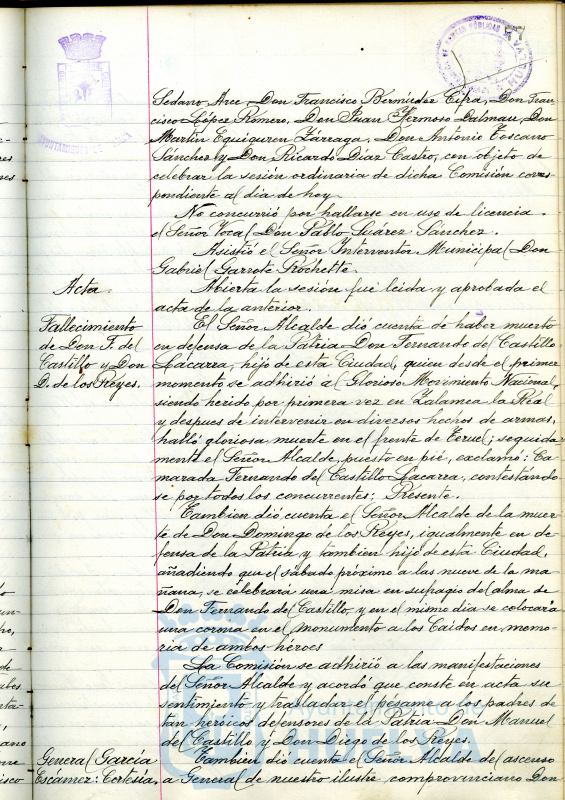 Sedano Arce Don Francisco Bermúdez Cifra, Don Fran-
cisco López Romero, Don Juan Hermoso Dalmau, Don
Martín Eguiguren Zárraga, Don Antonio Toscano
Sánchez y Don Ricardo Diaz Castro, con objeto de
celebrar la sesión ordinaria de dicha Comisión corres-
pondiente al dia de hoy.
No concurrió por hallarse en uso de licencia
el Señor Vocal Don Pablo Suárez Sánchez.
Asistió el Señor Interventor Municipal Don
Gabriel Garrote Rochette.
Acta.
Abierta la sesión fué leida y aprobada el
acta de la anterior.
Fallecimiento
de Don F. del
Castillo y Don
D. de los Reyes.
El Señor Alcalde dió cuenta de haber muerto
en defensa de la Patria Don Fernando del Castillo
Lacarra, hijo de esta Ciudad, quien desde el primer
momento se adhirió al Glorioso Movimiento Nacional,
siendo herido por primera vez en Zalamea la Real
y despues de intervenir en diversos hechos de armas,
halló gloriosa muerte en el frente de Teruel; seguida-
mente el Señor Alcalde, puesto en pié, exclamó: Ca-
marada Fernando del Castillo Lacarra, contestándo-
se por todos los concurrentes: Presente.
Tambien dió cuenta el Señor Alcalde de la muer-
te de Don Domingo de los Reyes, igualmente en de-
fensa de la Patria y tambien hijo de esta Ciudad,
añadiendo que el sábado próximo a las nueve de la ma-
ñana, se celebrará una misa en sufragio del alma de
Don Fernando del Castillo y en el mismo dia se colocará
una corona en el monumento a los Caidos en memo-
ria de ambos héroes
La Comisión se adhirió a las manifestaciones
del Señor Alcalde y acordó que conste en acta su
sentimiento y trasladar el pésame a los padres de
tan heróicos defensores de la Patria Don Manuel
del Castillo y Don Diego de los Reyes.
General García
Escámez: Cortesía,
Tambien dió cuenta el Señor Alcalde del ascenso
a General de nuestro ilustre comprovinciano Don